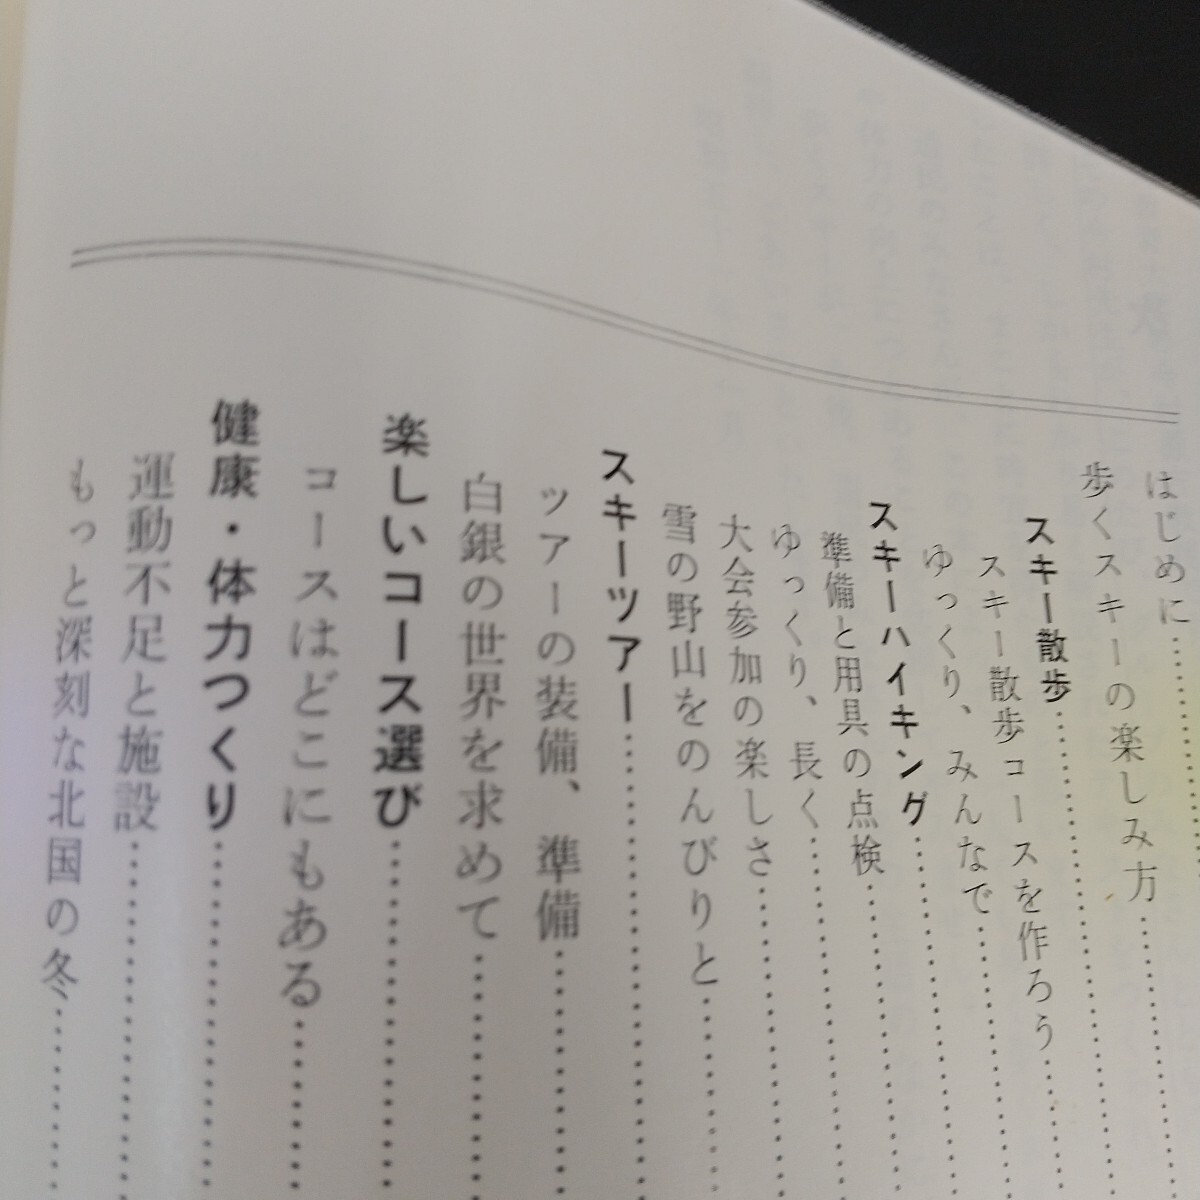 はじめに
歩くスキーの楽しみ方
スキー散歩
スキー散歩コースを作ろう
ゆっくり、みんなで
スキーハイキング
準備と用具の点検
ゆっくり、長く
大会参加の楽しさ
雪の野山をのんびりと
スキーツアー
ツアーの装備、準備
白銀の世界を求めて
楽しいコース選び
コースはどこにもある
健康・体力つくり
運動不足と施設
もっと深刻な北国の冬